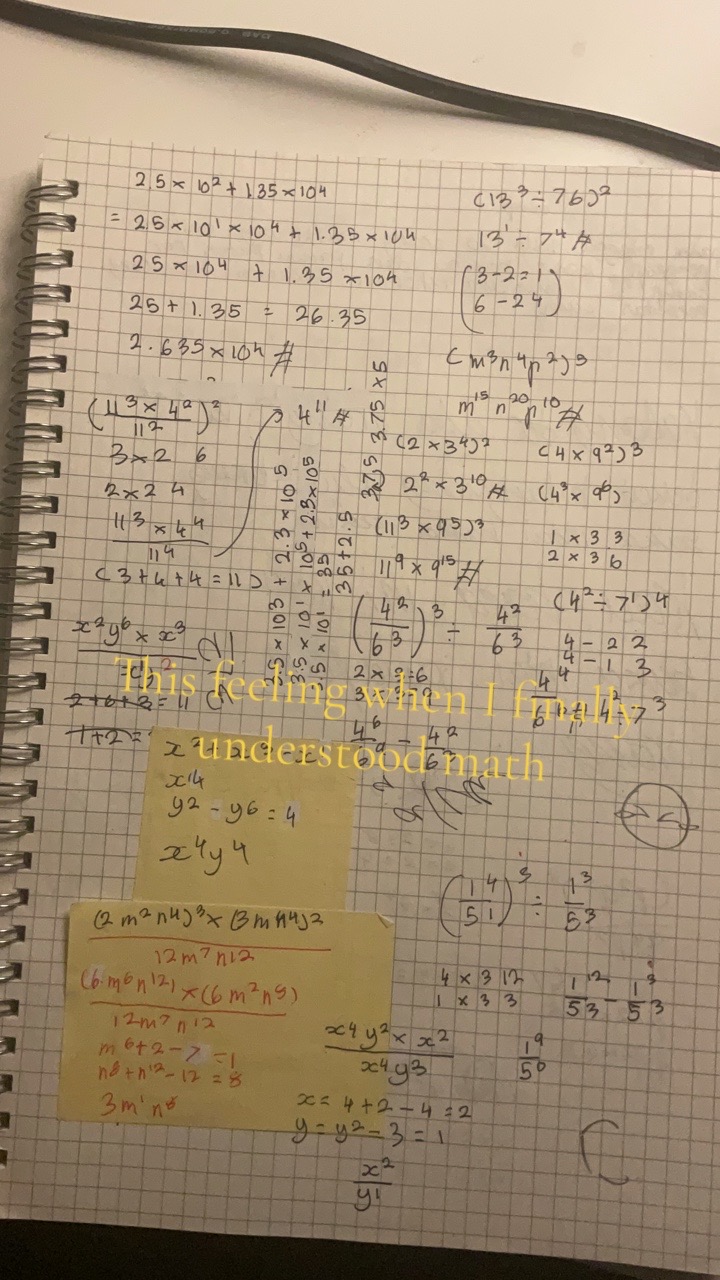 2.5 × 10² + 1.35 × 10⁴
= 2.5 × 10¹ × 10⁴ + 1.35 × 10⁴
25 × 10⁴ + 1.35 × 10⁴
25 + 1.35 = 26.35
2.635 × 10⁴ #
(13³ ÷ 76)²
13¹ ÷ 7⁴ #
(3-2=1
6-2 4)
(m³n⁴p²)⁵
m¹⁵ n²⁰ p¹⁰ #
(11³ × 4²)²
11²
3×2 6
2×2 4
11³ × 4⁴
11⁴
(3+4+4=11)
4¹¹ #
3.5 × 10³ + 2.3 × 10⁵
3.5 × 10¹ × 10⁵ + 2.3 × 10⁵
3.5 × 10¹ = 35
35 + 2.5
3.75 × 5
(2 × 3⁴)²
2² × 3¹⁰ #
(11³ × 9⁵)³
11⁹ × 9¹⁵ #
(4 × 9²)³
(4³ × 9⁶)
1 × 3 3
2 × 3 6
(4² ÷ 7¹)4
4 - 2 2
4 - 1 3
(4²/6³)³ ÷ 4²/6³
2 × 3 = 6
x²y⁶ × x³
This feeling when I finally
understood math
x⁴
y² - y⁶ = 4
x⁴y⁴
(2m²n⁴)³ × (3mn⁴)2
12m⁷n12
(6m⁶n¹²) × (6m²n⁸)
12m⁷n12
m⁶+2-7=1
n⁸+n¹²-12=8
3m¹n⁸
(1⁴/5¹)³ ÷ 1³/5³
4 × 3 12
1 × 3 3
1¹²/5³ - 1³/5³
1⁹/5⁰
x⁴y² × x²
x⁴y³
x = 4+2-4=2
y = y²-3=1
x²
y¹